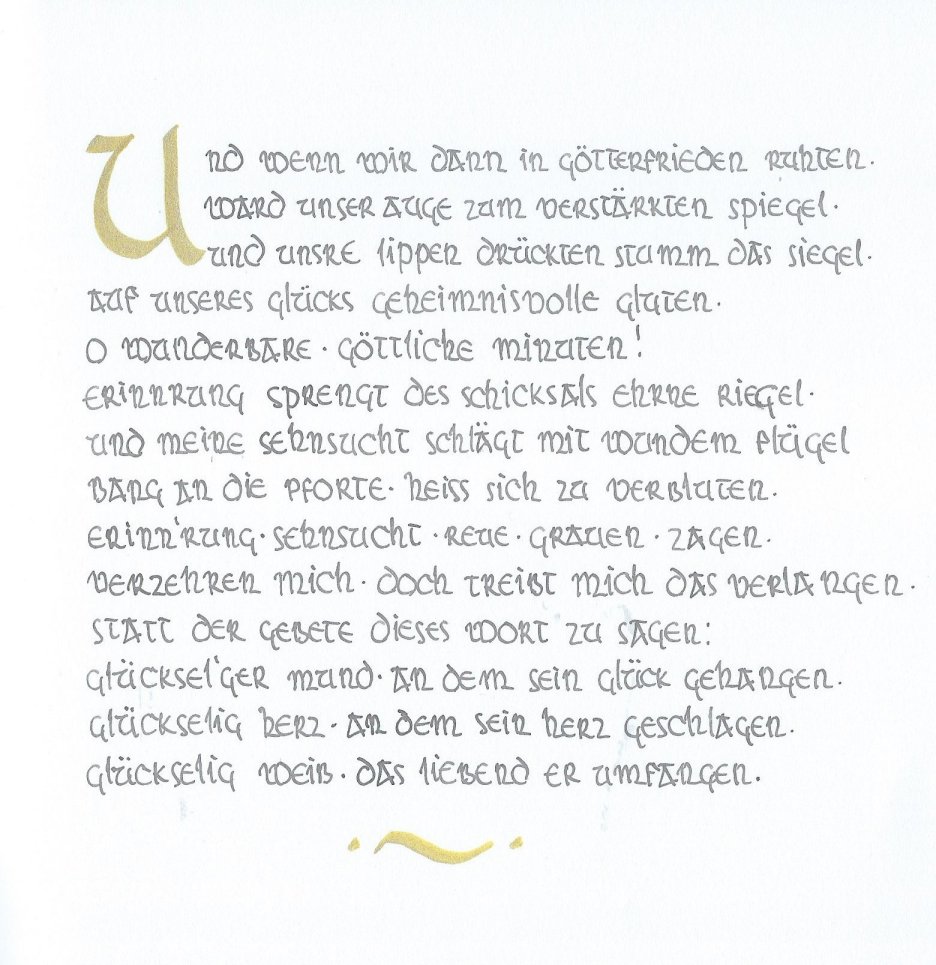 Und wenn wir dann in götterfrieden ruhten·
ward unser auge zum verstärkten spiegel·
und unsre lippen drückten stumm das siegel·
auf unseres glücks geheimnisvolle gluten·
o wunderbare· göttliche minuten!
erinnrung sprengt des schicksals ehrne riegel·
und meine sehnsucht schlägt mit wundem flügel
bang an die pforte· heiss sich zu verbluten·
erinn'rung· sehnsucht· reue· grauen· zagen·
verzehren mich· doch treibt mich das verlangen·
statt der gebete dieses wort zu sagen:
glücksel'ger mund· an dem sein glück gehangen·
glückselig herz· an dem sein herz geschlagen·
glückselig weib· das liebend er umfangen·